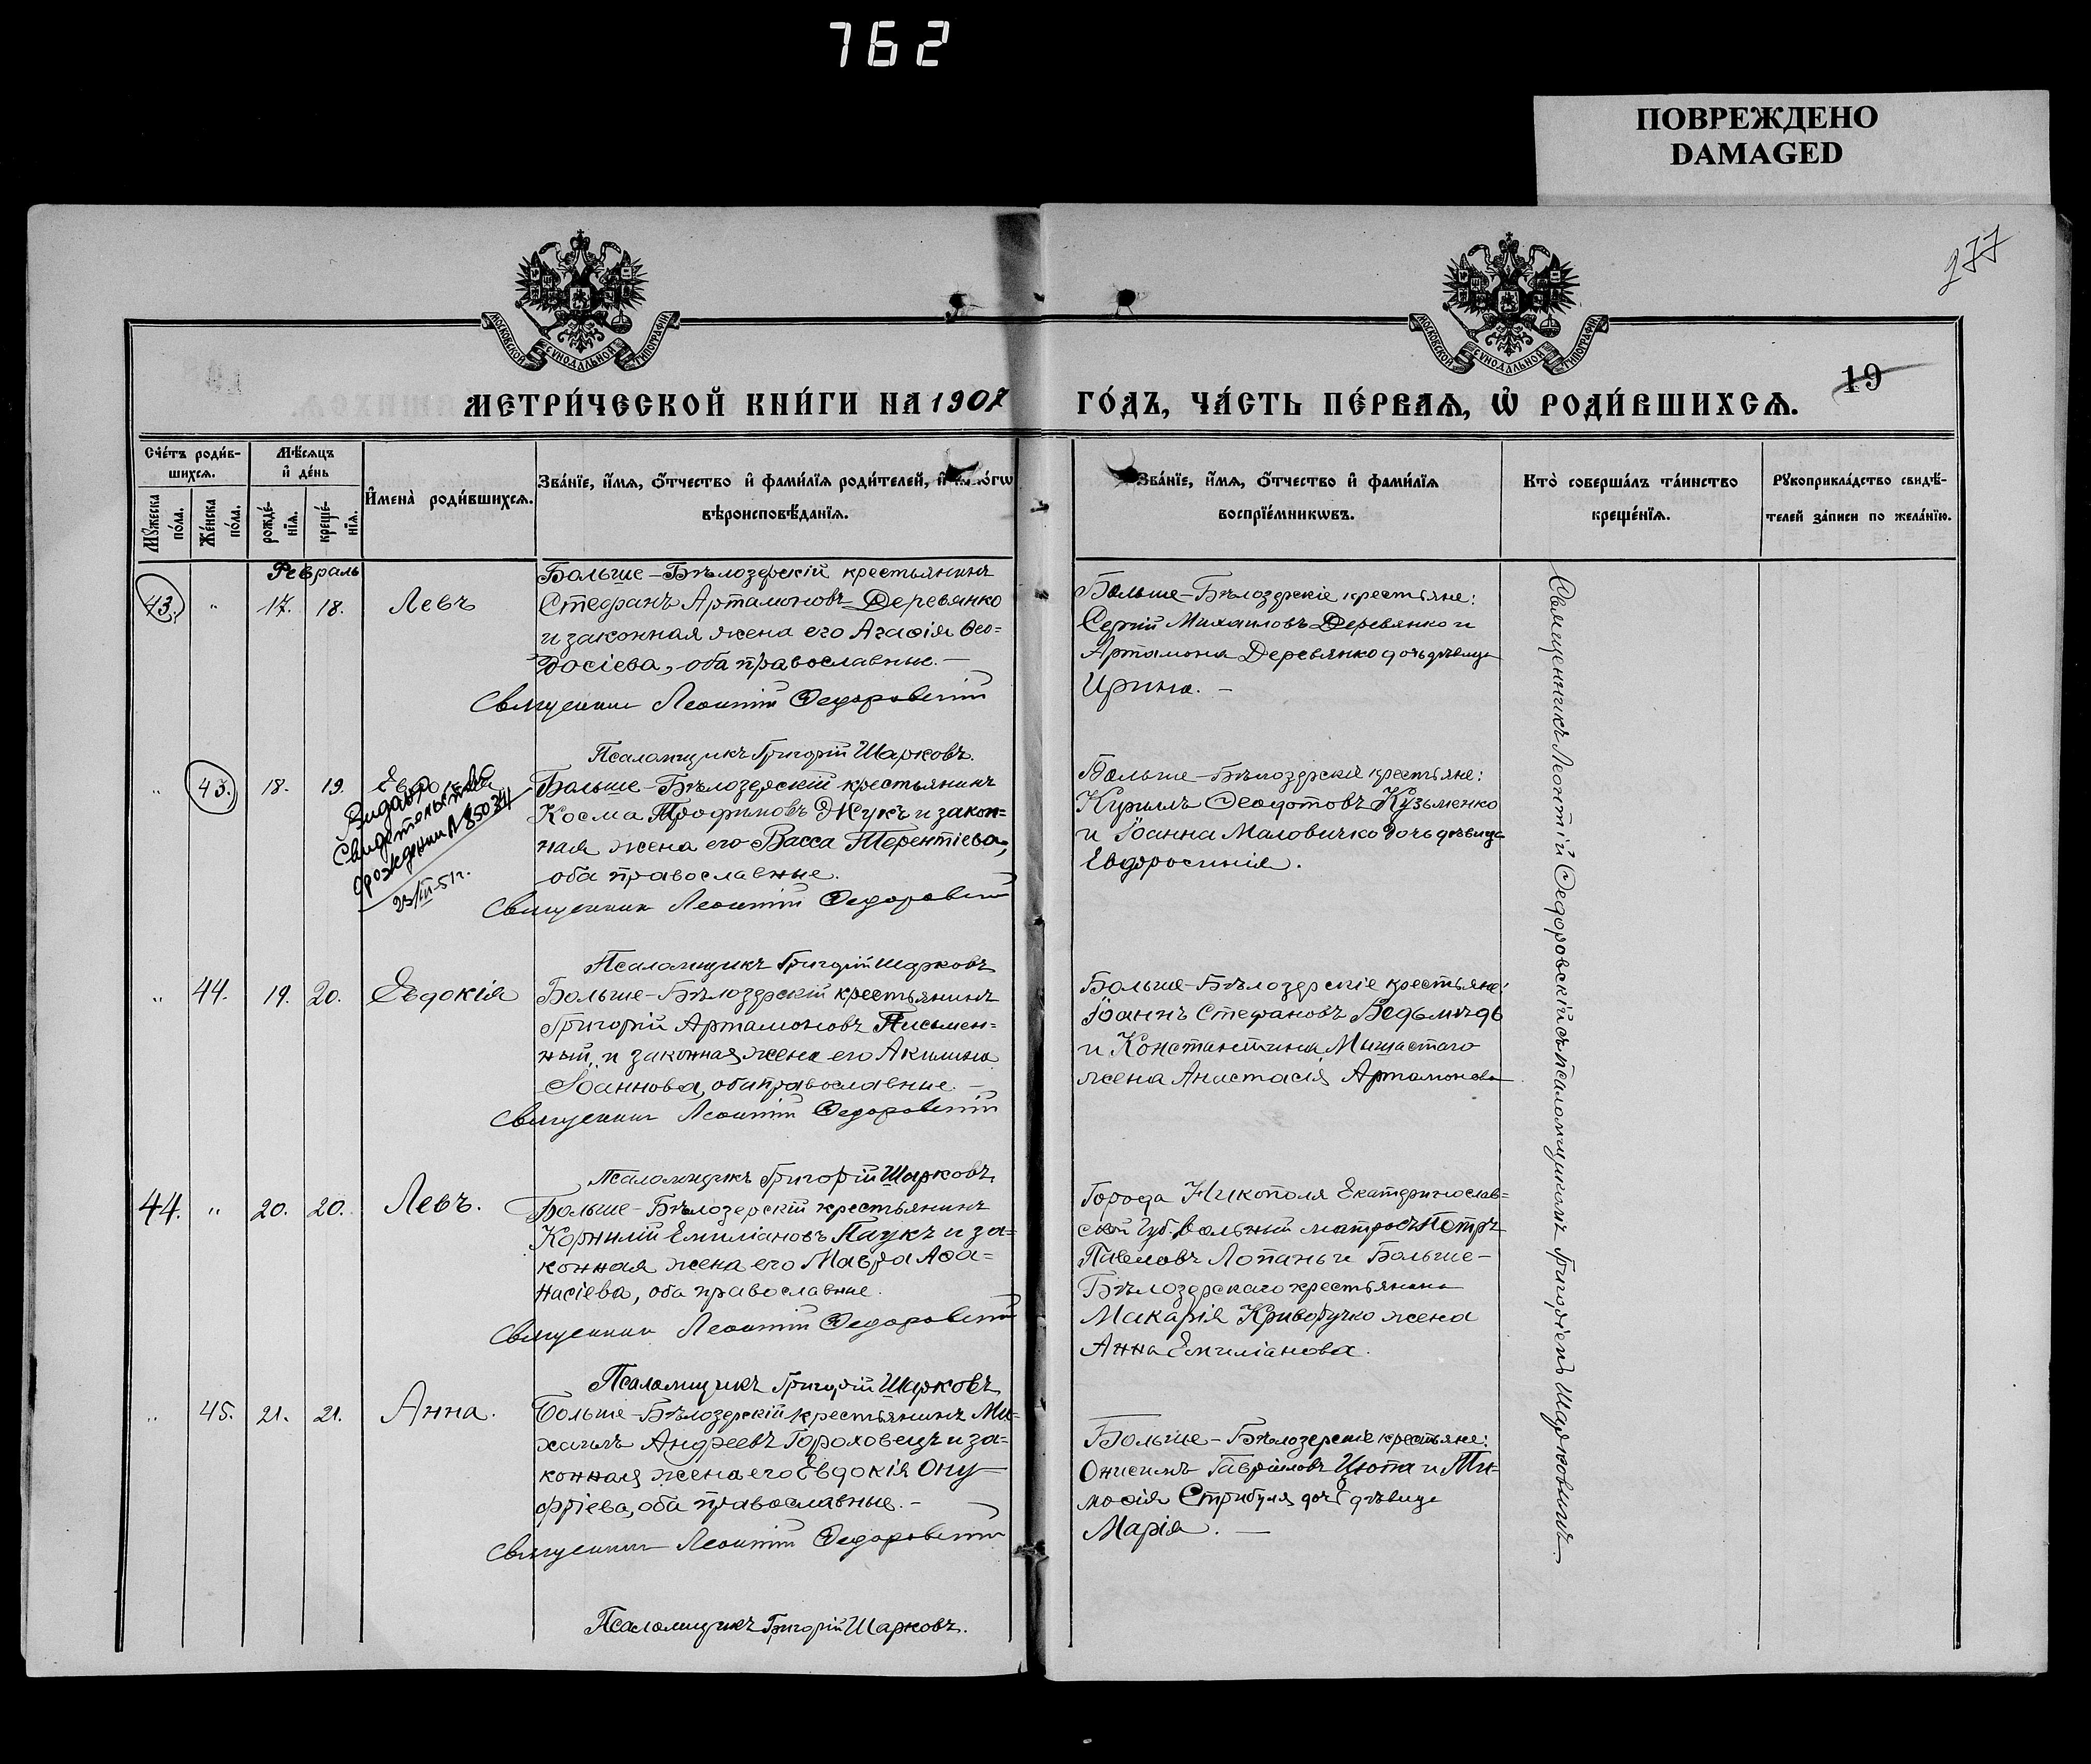 762
ПОВРЕЖДЕНО
DAMAGED
277
МОСКОВСКОЙ СѴНОДАЛЬНОЙ ТИПОГРАФІИ
МОСКОВСКОЙ СѴНОДАЛЬНОЙ ТИПОГРАФІИ
19
МЕТРИ́ЧЕСКОЙ КНИ́ГИ НА 1907 ГО́ДЪ, ЧА́СТЬ ПЕ́РВАѦ, Ѡ҆ РОДИ́ВШИХСѦ.
Сче́тъ роди́в-
шихсѧ.
Мꙋ́жеска по́ла.
Же́нска по́ла.
Мѣ́сѧцъ
и҆ де́нь
рожде́-
нїѧ.
креще́-
нїѧ.
И҆мена̀ роди́вшихсѧ.
Зва́нїе, и҆́мѧ, ѻ҆́тчество и҆ фами́лїѧ роди́телей, и҆
вѣроисповѣ́данїѧ.
Зва́нїе, и҆́мѧ, ѻ҆́тчество и҆ фами́лїѧ
воспрїе́мникѡвъ.
Кто̀ соверша́лъ та́инство
креще́нїѧ.
Рꙋкоприкла́дство свидѣ́-
телей за́писи по жела́нїю.
Февраль
43. " 17. 18. Левъ
Больше-Бѣлозерскій крестьянинъ
Стефанъ Артамоновъ Деревянко
и законная жена его Агафія Ѳео-
досіева, оба православные.-
Священникъ Леонтій Федоровскій
Псаломщикъ Григорій Шарковъ.
Больше-Бѣлозерскіе крестьяне:
Сергій Михаиловъ Деревянко и
Артамона Деревянко дочь дѣвица
Ирина. -
" 43. 18. 19.
Видано
Свидетельство
о рождении № 85034
23/III-51 г.
Больше-Бѣлозерскій крестьянинъ
Косма Трофимовъ Жукъ и закон-
ная жена его Васса Терентіева,
оба православные.
Священникъ Леонтій Федоровскій
Псаломщикъ Григорій Шарковъ
Больше-Бѣлозерскіе крестьяне:
Кириллъ Феодотовъ Кузьменко
и Іоанна Маловичко дочь дѣвица
Евфросинія.
" 44. 19. 20. Евдокія
Больше-Бѣлозерскій крестьянинъ
Григорій Артамоновъ Письмен-
ный, и законная жена его Акилина
Іоаннова, оба православные. -
Священникъ Леонтій Федоровскій
Псаломщикъ Григорій Шарковъ
Больше-Бѣлозерскіе крестьяне:
Іоаннъ Стефановъ
и Константина Мышастаго
жена Анастасія Артамонова
44. " 20. 20. Левъ.
Больше-Бѣлозерскій крестьянинъ
Корнилій Емиліановъ Паукъ и за-
конная жена его Мавра Аѳа-
насіева, оба православные.
Священникъ Леонтій Федоровскій
Псаломщикъ Григорій Шарковъ
Города Никополя Екатеринослав-
ской губ. вольный матросъ Петръ
Павловъ Лопань и Больше-
Бѣлозерскаго крестьянина
Макарія жена
Анна Емиліанова.
" 45. 21. 21. Анна.
Больше-Бѣлозерскій крестьянинъ Ми-
хаилъ Андреевъ Гороховецъ и за-
конная жена его Евдокія Ону-
фріева, оба православные. -
Священникъ Леонтій Федоровскій
Псаломщикъ Григорій Шарковъ.
Больше-Бѣлозерскіе крестьяне:
Онисимъ Гавріиловъ Цюпа и Ти-
моѳія Стрибуля дочь дѣвица
Марія. -
Священникъ Леонтій Федоровскій съ псаломщикомъ Григоріемъ Шарковымъ.